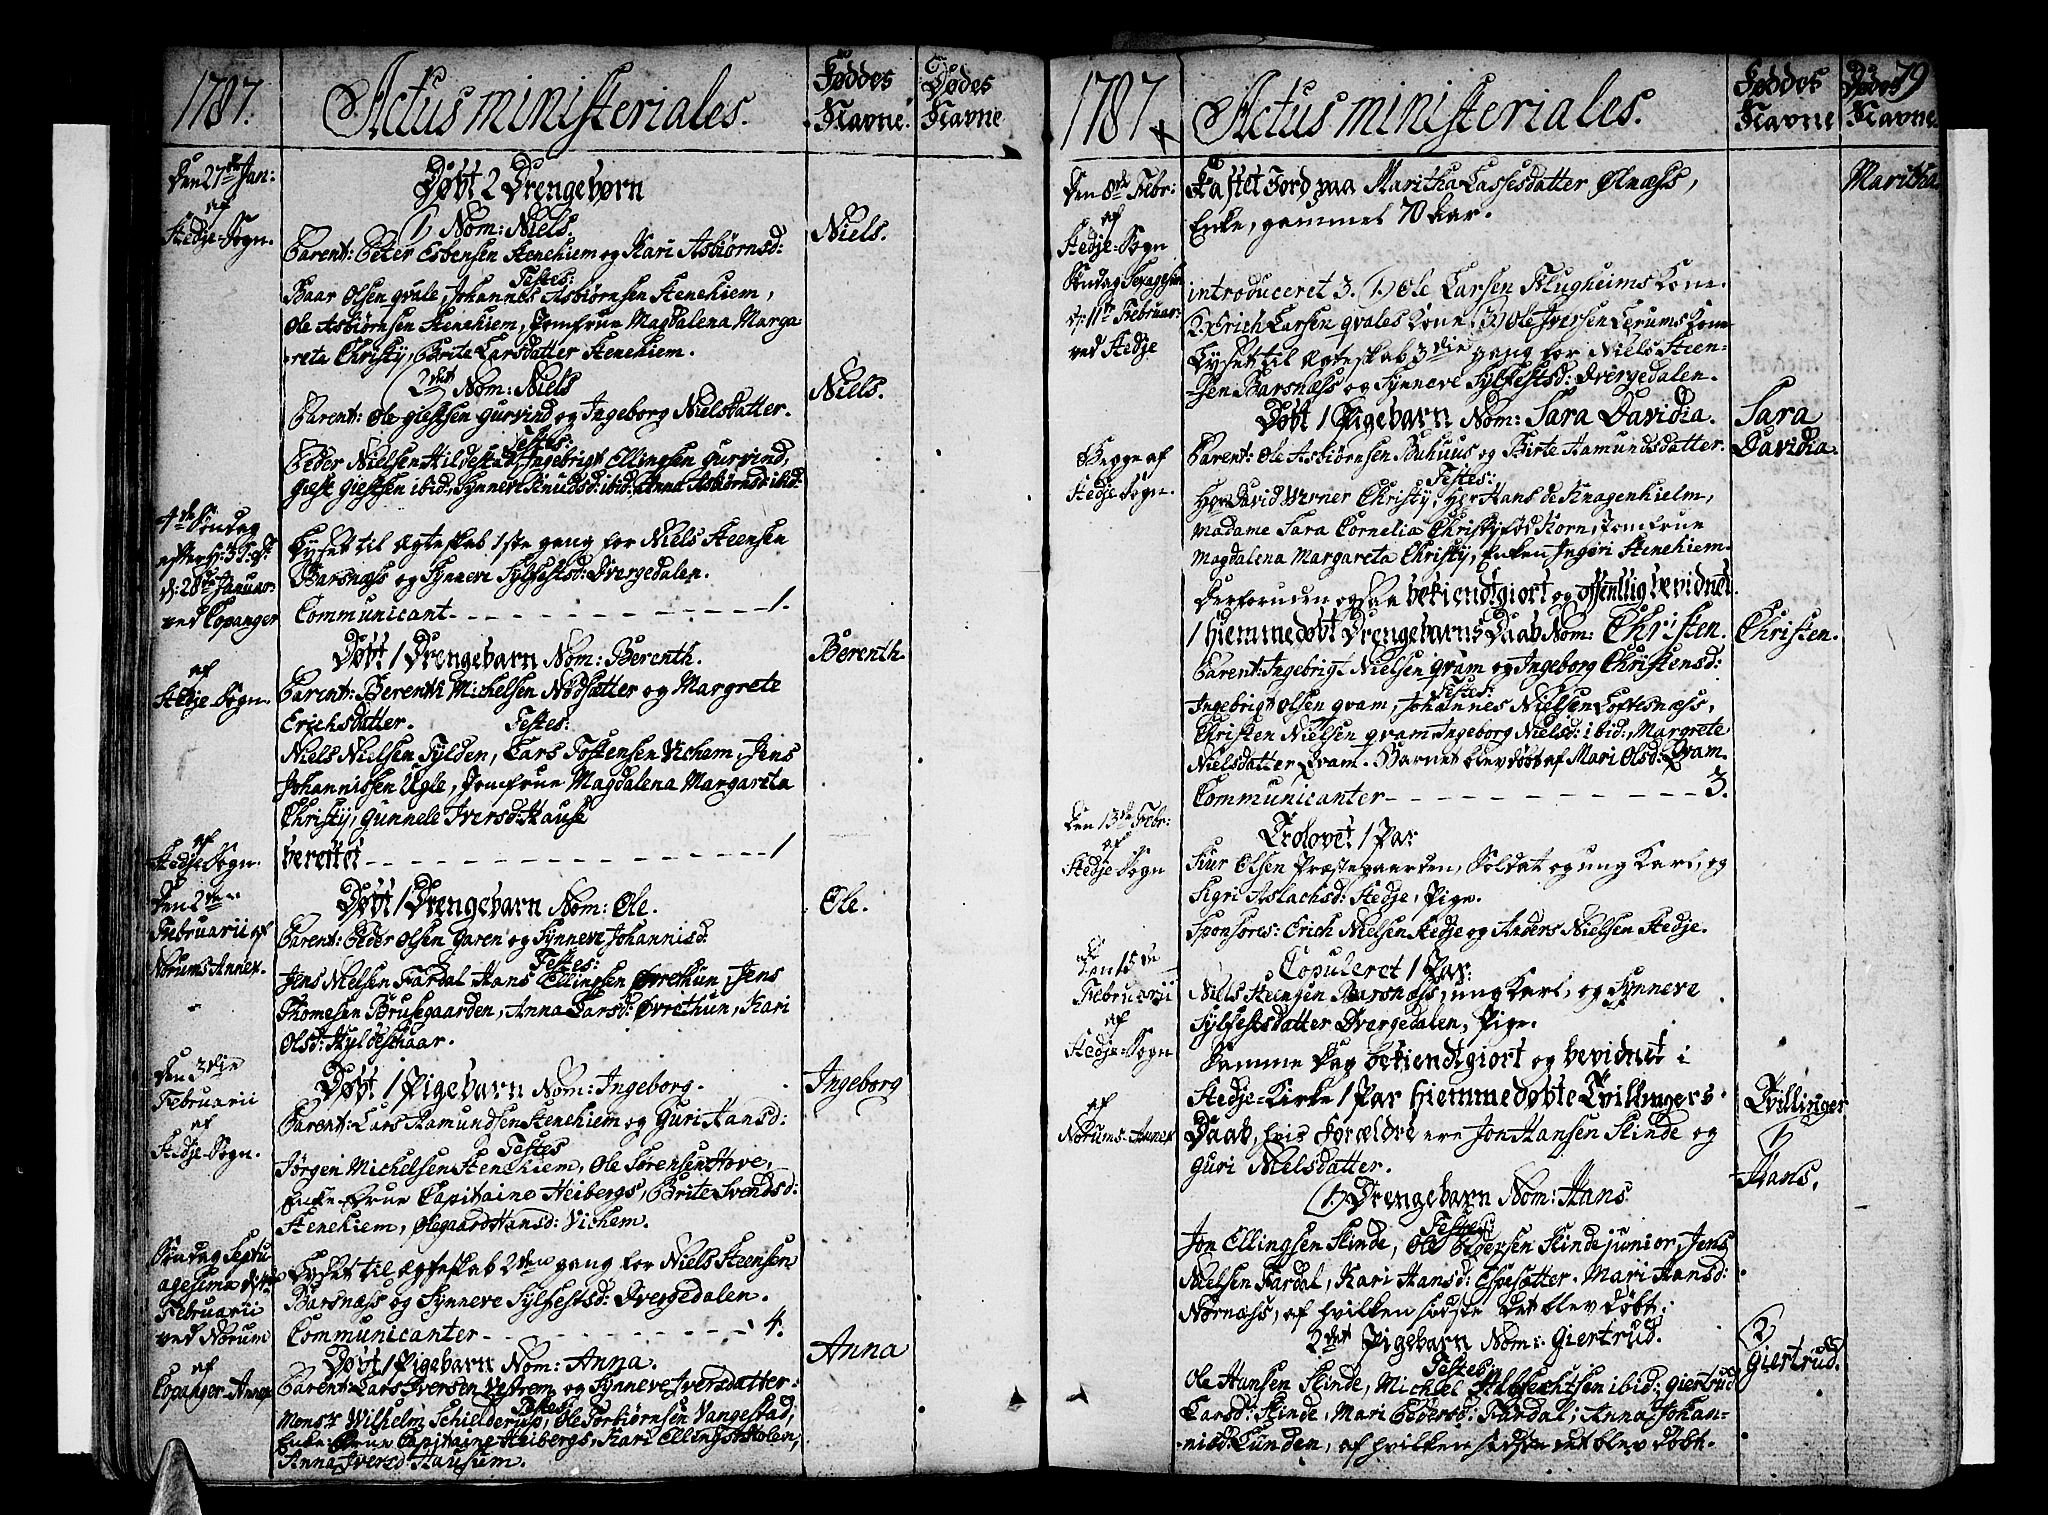 1787.
Actus ministeriales.
Føddes
Navne.
Dødes
Navne
Den 27de Jan:
af
Stedje-Sogn.
Døbt 2 Drengebørn
1) Nom: Niels.
Parent: Peter Esbensen Stenehiem og Kari Asbiørnsd:
Testes:
Baar Olsen Qvale, Johannes Asbiørnsen Stenehiem,
Ole Asbiørnsen Stenehiem, Jomfrue Magdalena Marga
reta Christy, Brite Larsdatter Stenehiem.
Niels.
2det Nom: Niels
Parent: Ole Giestsen Gurvind og Ingeborg Nielsdatter.
Testes:
Peder Nielsen Hildestad, Ingebrigt Ellingsen Gurvind,
Giest Giestsen ibid: Synneve Knudsd: ibid: Anna Asbiørnsd: ibid:
Niels.
4de Søndag
efter H: 3 K:
d: 28de Januar
ved Copanger
Lyset til Ægteskab 1ste gang for Niels Steensen
Barsnæss og Synneve Sylfestsd: Dvergedalen.
Communicant - - - 1.
af
Stedje-Sogn.
Døbt 1 Drengebarn Nom: Berenth.
Parent: Berenth Michelsen Nødsætter og Margrete
Erichsdatter. Testes:
Niels Nielsen Sylden, Lars Tostensen Vichem, Jens
Johannissen Ugle, Jomfrue Magdalena Margareta
Christy, Gunnele Iversd: Hause
Berenth.
af
Stedje Sogn.
berettet - - - 1
Den 2den
Februarii af
Norums Annex.
Døbt 1 Drengebarn Nom: Ole.
Parent: Peder Olsen Garen og Synneve Johannisd:
Testes:
Jens Nielsen Fardal Hans Ellingsen Øvrethun, Jens
Thomesen Brusegaarden, Anna Larsd: Øvrethun, Kari
Olsd: Hyldeschaar.
Ole.
Den 3die
Februarii
af
Stedje-Sogn.
Døbt 1 Pigebarn Nom: Ingeborg.
Parent: Lars Aamundsen Stenehiem og Guri Hansd:
Testes
Jørgen Michelsen Stenehiem, Ole Sørensen Hove,
Enke-Frue Capitaine Heibergs, Brite Svendsd:
Stenehiem, Olegaard Hansd: Vichem.
Ingeborg
Søndag Septu
agesima d: 4de
Februarii
ved Norum
Lyset til Ægteskab 2den gang for Niels Steensen
Barsnæss og Synneve Sylfestsd: Dvergedalen.
Communicanter - - - 4.
af
Copanger-Annex
Døbt 1 Pigebarn Nom: Anna.
Parent: Lars Iversen Vestrem og Synneve Iversdatter.
Testes:
Monsr Wilhelm Schielderup, Ole Torbiørnsen Vangestad,
Enke Frue Capitaine Heibergs, Kari Ellingsd: Holen,
Anna Iversd: Hausum.
Anna
1787.
Actus ministeriales.
Føddes
Navne
Dødes
Navne.
79
Den 8de Febr:
af
Stedje-Sogn
Kastet Jord paa Maritha Lassesdatter Ølnæss,
Enke, gammel 70 Aar.
Maritha
Søndag Sexagesim
d: 11te Februar:
ved Stedje
introduceret 3. 1) Ole Larsen Flugheims Kone.
2) Erich Larsen Qvales Kone 3) Ole Iversen Lerums Kone
Lyset til Ægteskab 3die gang for Niels Steen-
sen Barsnæss og Synneve Sylfestsd: Dvergedalen.
Begge af
Stedje Sogn.
Døbt 1 Pigebarn Nom: Sara Davidia.
Parent: Ole Asbiørnsen Bahuus og Birte Aamundsdatter.
Testes:
Herr David Werner Christy, Hr: Hans de Knagenhielm,
Madame Sara Cornelia Christy fød Korn, Jomfrue
Magdalena Margareta Christy, Enken Ingøri Stenehiem.
Sara
Davidia.
Derforuden ogsaa bekiendtgiort og offentlig bevidnet
1 hiemmedøbt Drengebarns Daab Nom: Christen.
Parent: Ingebrigt Nielsen Qvam og Ingeborg Christensd:
Testes:
Ingebrigt Olsen Qvam, Johannes Nielsen Loftesnæss,
Christen Nielsen Qvam, Ingeborg Nielsd: ibid:, Margrete
Nielsdatter Qvam. Barnet blev døbt af Mari Olsd: Qvam.
Communicanter - - - 3.
Christen.
Den 13de Febr:
af
Stedje Sogn
Trolovet 1 Par
Siur Olsen Præstegaarden, Soldat og ung Karl, og
Sigri Aslachsd: Stedje, Pige.
Sponsores: Erich Nielsen Stedje og Anders Nielsen Stedje.
Den 15de
Februarii
af
Stedje-Sogn
Copuleret 1 Par:
Niels Steensen Barsnæss, ung Karl, og Synneve
Sylfestsdatter Dvergedalen, Pige.
af
Norums-Annex
Samme Dag bekiendtgiort og bevidnet i
Stedje-Kirke 1 Par hiemmedøbte Tvillingers
Daab, hvis Forældre ere Jon Hansen Slinde og
Guri Nielsdatter.
Tvillinger
1)
Hans.
1) Drengebarn Nom: Hans
Testes:
Jon Ellingsen Slinde, Ole Pedersen Slinde junior, Jens
Nielsen Fardal, Kari Hansd: Espesætter. Mari Hansd:
Nornæss, af hvilken sidste det blev døbt.
2det Pigebarn Nom: Giertrud.
Testes
Ole Hansen Slinde, Michel Albrechtsen ibid: Giertrud
Larsd: Slinde, Mari Pedersd: Fardal, Anna Johan-
nisd: Lunden, af hvilken sidste det blev døbt.
2)
Giertrud.